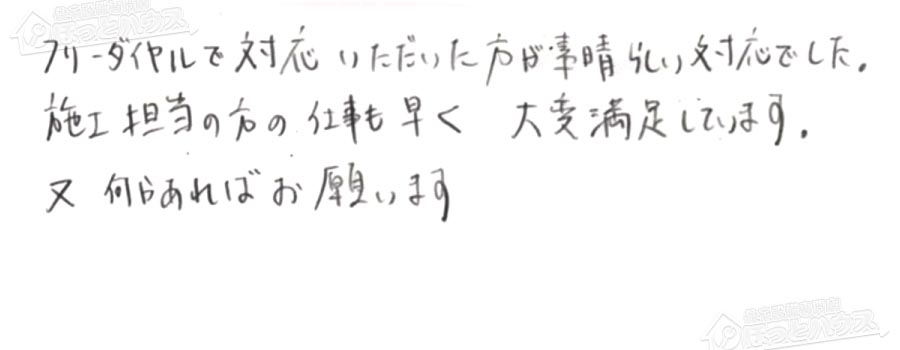 フリーダイヤルで対応いただいた方が事晴らしい対応でした。
施工担当の方の仕事も早く 大変満足しています。
又 何らあればお願います
ほっとハウス
ほっとハウス